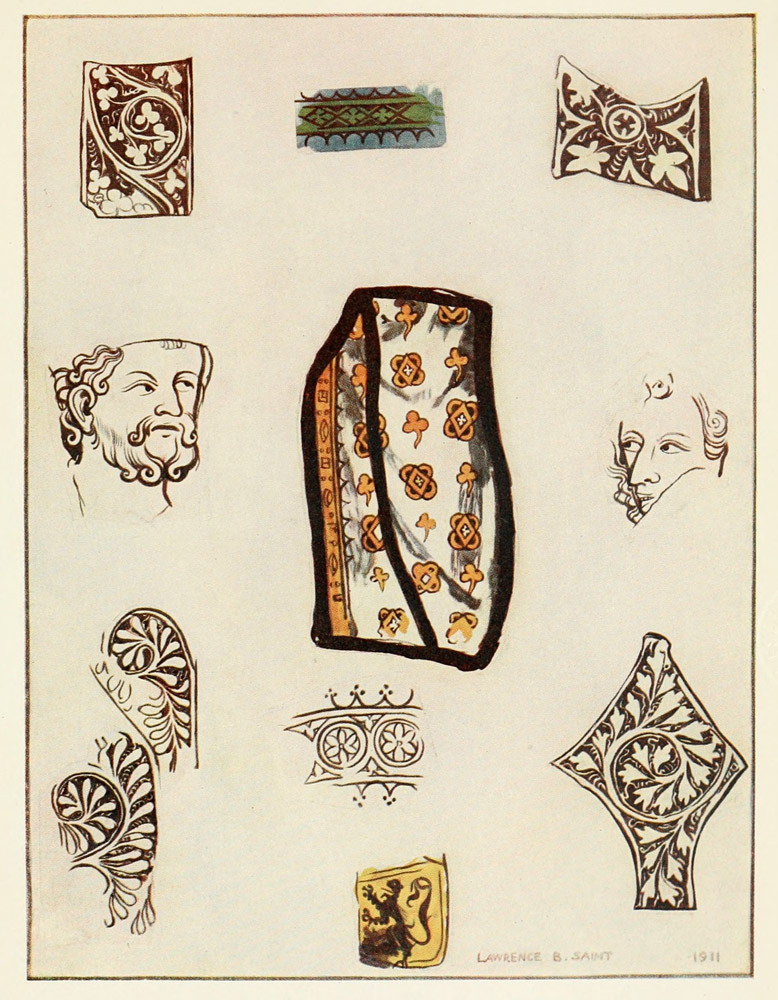 LAWRENCE B. SAINT 1911